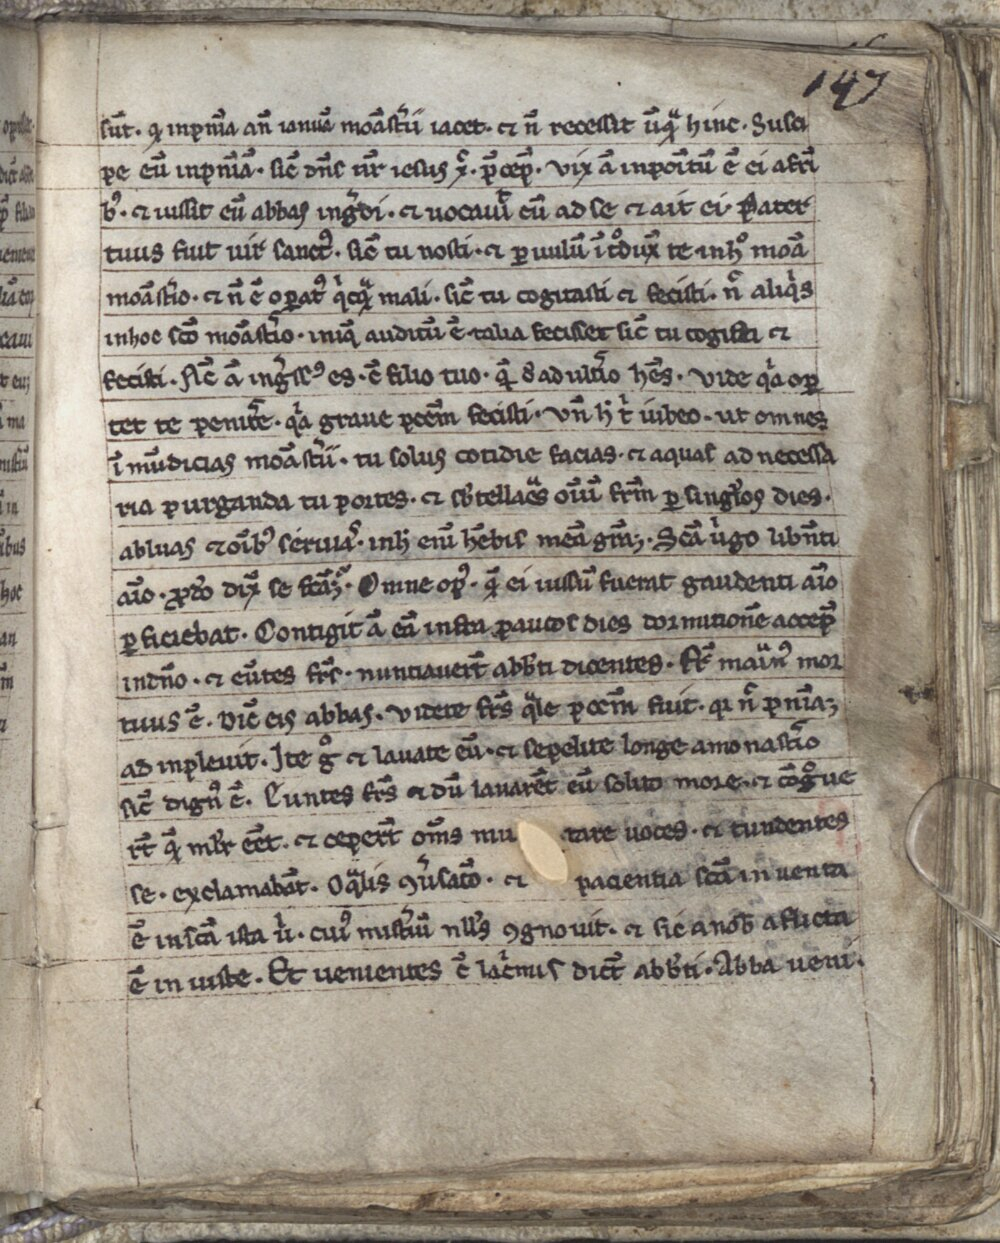 147
sūt. qi inpn̄ia an̄ ianuā moāst̄ii iacet. et n̄ recessit ūqͣ hinc. Susci
pe eū inpn̄iā. sic̄ dn̄s nr̄ iesus xp̄. p̄cep̄. vix ā inpoītū ē ei afr̄i
bꝰ. et iussit eū abbas ingͣdi. et uocauit eū ad se et ait ei. Pater
tuus fuit uir sanctꝰ. sic̄ tu nosti. et paruulū ītͦdux̄ te inhͦ moā
moāst̄io. et n̄ ē opatꝰ qͥcqͣ mali. sic̄ tu cogitasti et fecisti. n̄ aliqͥs
inhoc sc̄o moāst̄io. inīq auditū ē talia fecisset sic̄ tu cogitasti et
fecisti. Nc̄ ā ingͣssꝰ es. c̄ filio tuo. qm̄ d̄ adult̄io hēs. Vide qͥa opor
tet te penit̄e. qͥa graue pccm̄ fecisti. Vn̄ h tͥ iubeo. ut omnes
īmūdicias moāst̄ii. tu solus cotidie facias. et aquas ad necessa
ria purganda tu portes. et sbtellares om̄iū fr̄m p singulos dies.
abluas et oībꝰ seruias. inh eni hēbis meā gr̄az. Sc̄a uͥgo libn̄ti
aīo. dix̄ se fc̄az. Omne opꝰ. qd̄ ei iussū fuerat gaudenti aīo
pficiebat. Contigit ā eā infra paucos dies dormitionē accep̄
indn̄o. et eūtes fr̄s. nuntiauert̄ abb̄ti dicentes. Fr̄ mainꝰ mor
tuus ē. Dic̄ eis abbas. Videte fr̄s qͣle pccm̄ fuit. qi n̄ pn̄iaz
adinpleuit. Ite gͦ et lauate eū. et sepelite longe amonast̄io
sic̄ dignꝰ ē. Euntes fr̄s et dū lauarēt eū solito more. et cogͦue
rt̄ qd̄ mlr̄ eēt. et ceperūt om̄s mu tare uoces. et tundentes
se. exclamabāt. O qͣlis ꝯuͥsatō. et pacientia sc̄a inuenta
ē insc̄a ista uͥ. cuiꝰ mist̄iū nll̄s ꝯgnouit. et sic anob aflicta
ē iniuste. Et uenientes c̄ lacͥmis dicūt abb̄ti. Abba ueni.